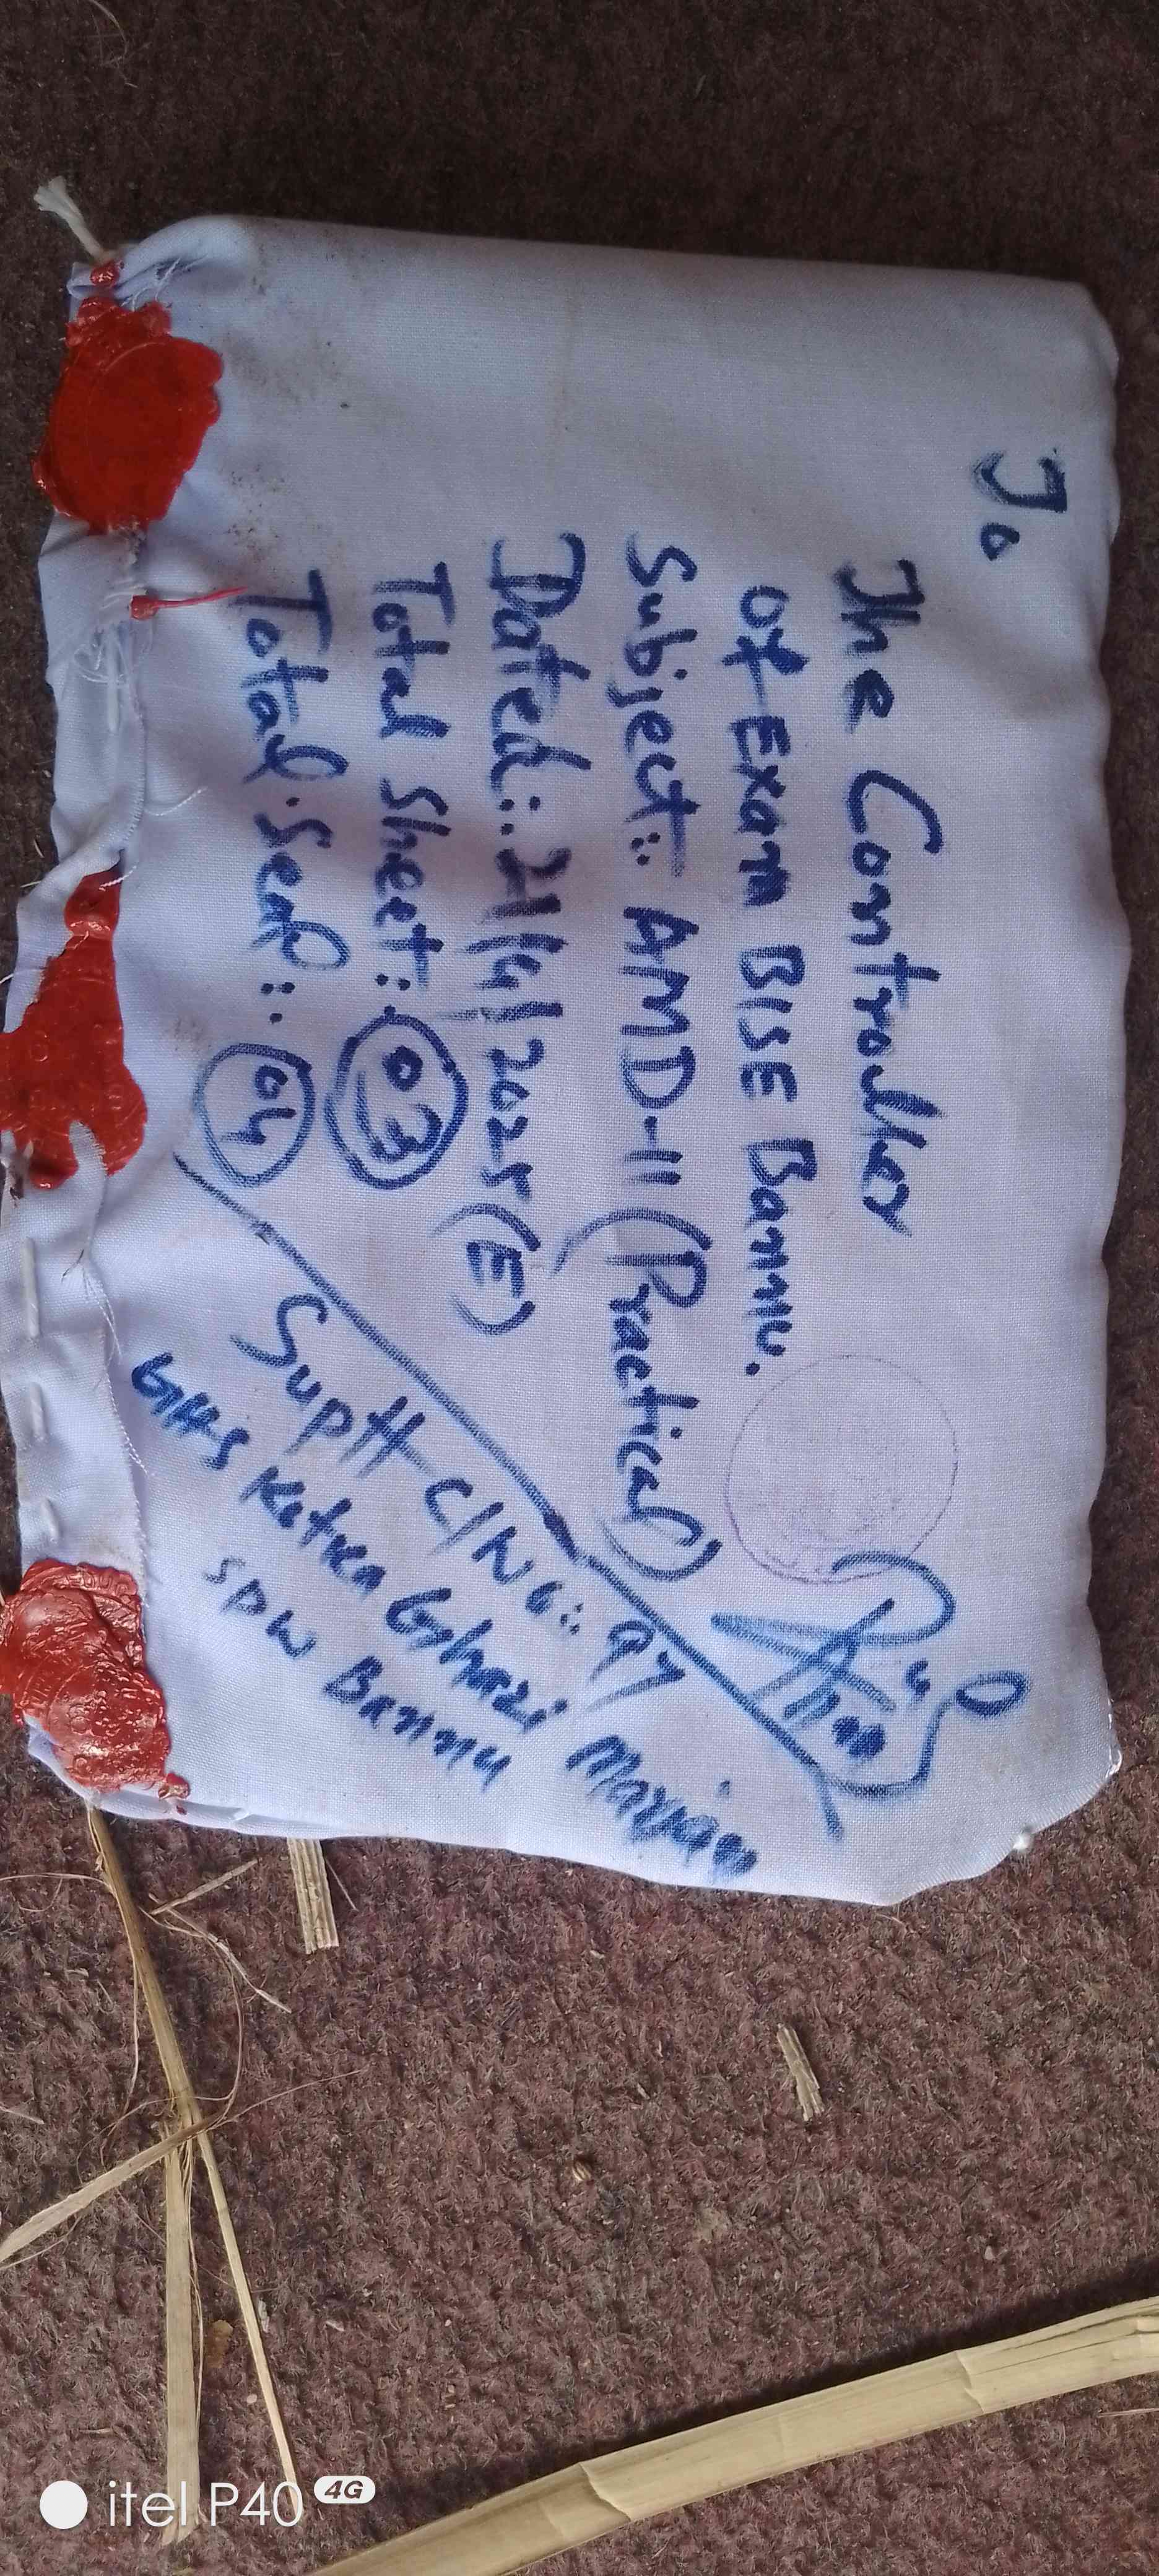 To
The Controller
of Exam BISE Bannu.
Subject:. AMD-II (Practical)
Dated:. 21/6/2025 (E)
Total Sheet:. 03
Total Seal:. 04
Suptt C/No:. 97
GHS Kotka Ghazi Marjan
SDW Bannu
itel P40 4G